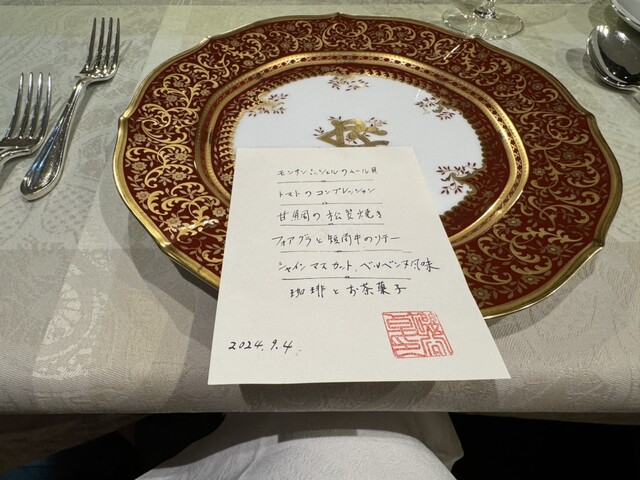 モンサンミッシェルのムール貝
トマトのコンプレッション
甘鯛の松笠焼き
フォアグラと短角牛のソテー
シャインマスカット、ベルベンヌ風味
珈琲とお茶菓子
2024.9.4